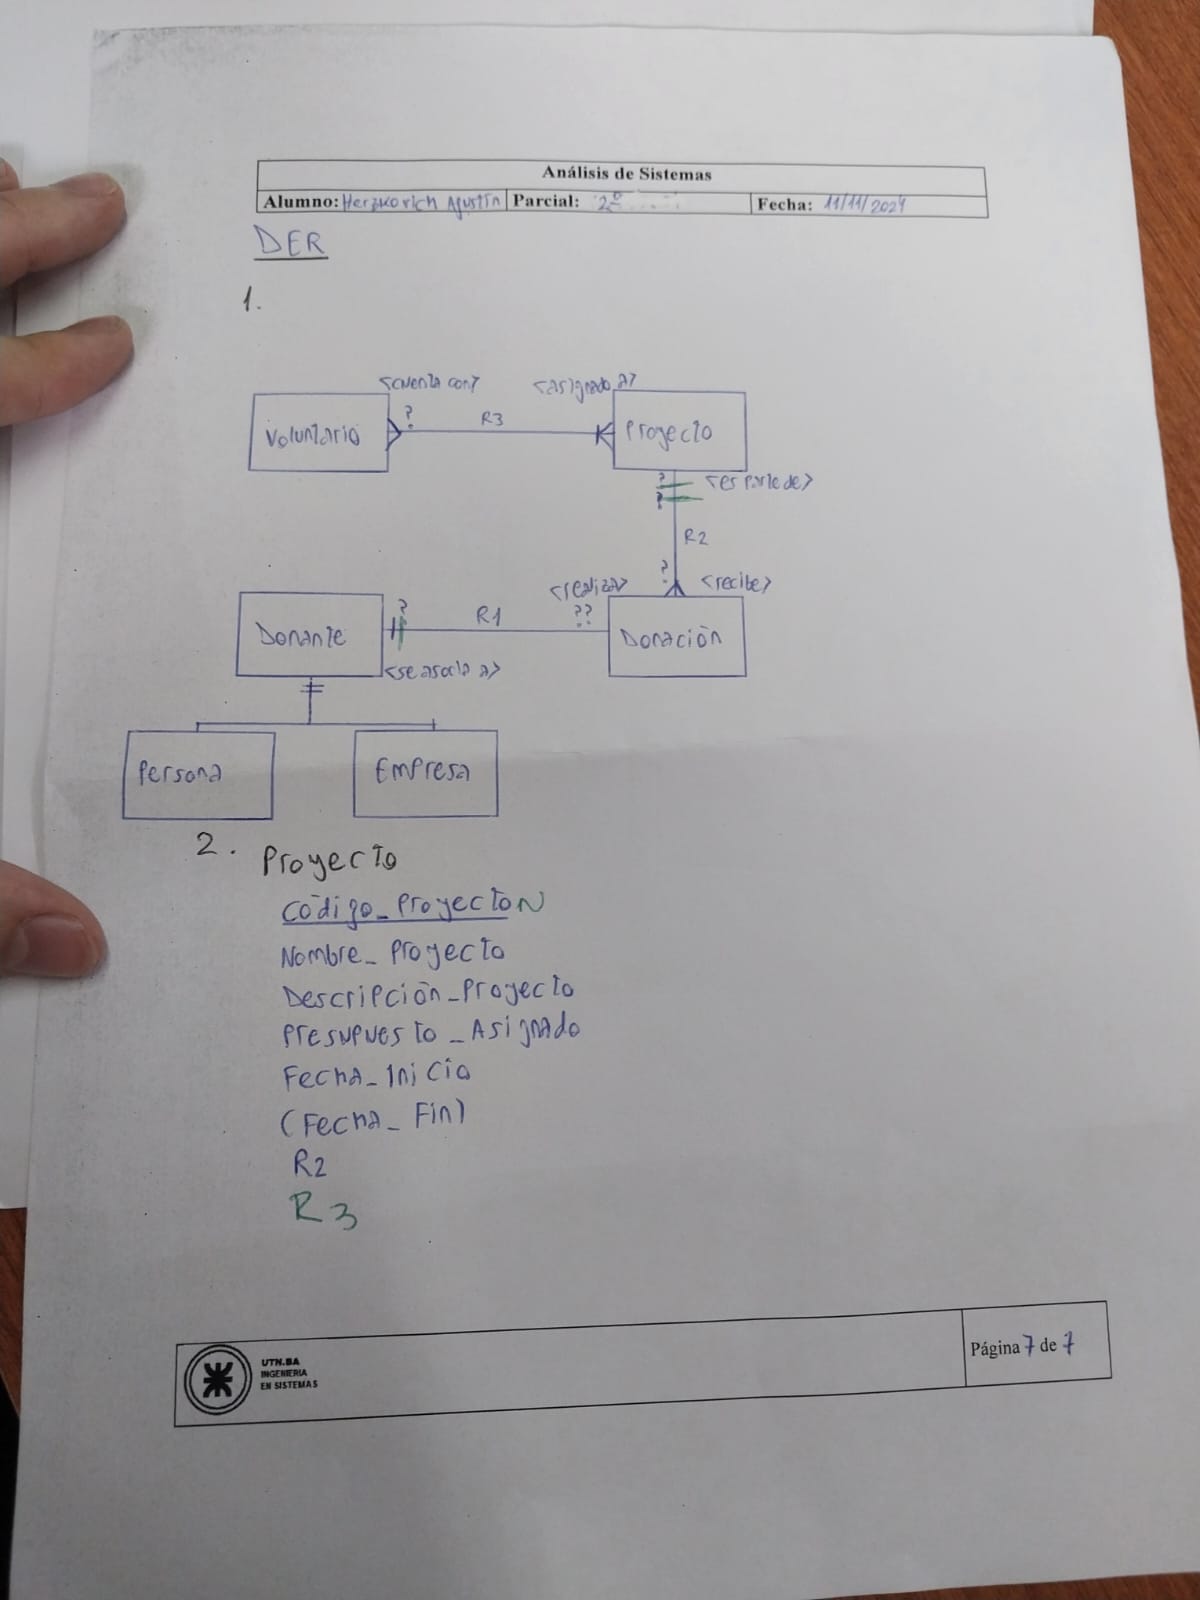 Análisis de Sistemas
Alumno: Herzkovich Agustín Parcial: 2º Fecha: 11/11/2024
DER
1.
<cuenta con> <asignado a>
Voluntario ? R3 Proyecto
? <es parte de>
?
R2
<realiza> ? <recibe>
Donante ? R1 ?? Donación
<se asocia a>
Persona Empresa
2. Proyecto
Código_ProyectoN
Nombre_Proyecto
Descripción_Proyecto
Presupuesto_Asignado
Fecha_Inicio
(Fecha_Fin)
R2
R3
UTN.BA
INGENIERIA
EN SISTEMAS
Página 7 de 7